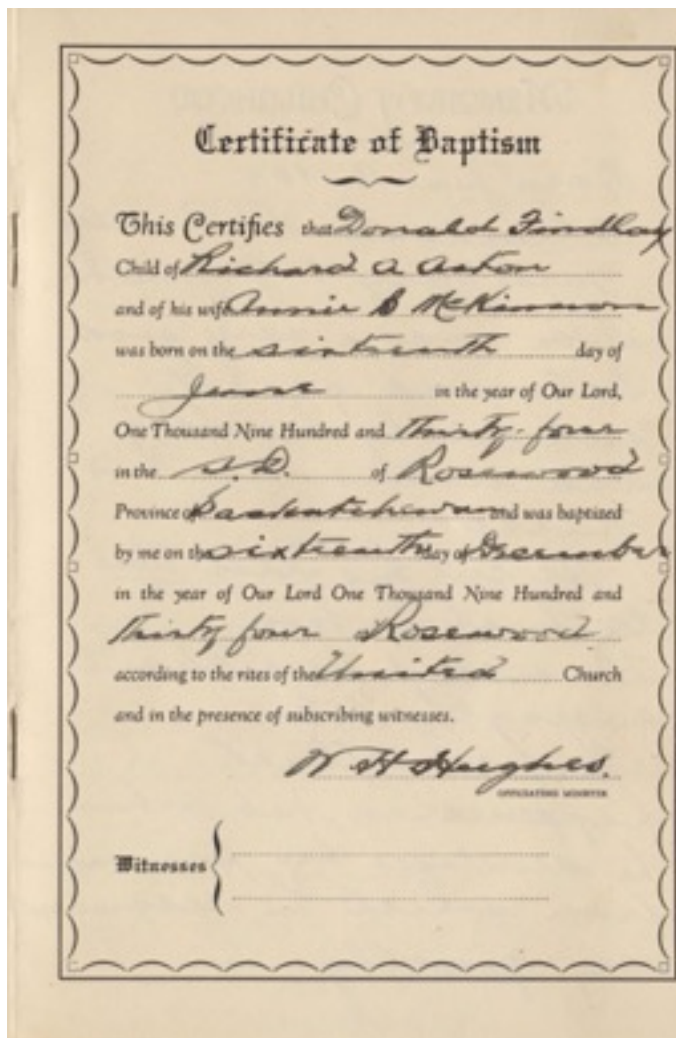 Certificate of Baptism
This Certifies that Donald Findlay
Child of Richard A Aston
and of his wife Annie B McKinnon
was born on the sixteenth day of
June in the year of Our Lord,
One Thousand Nine Hundred and Thirty-four
in the S.D. of Rosewood
Province of Saskatchewan and was baptized
by me on the sixteenth day of December
in the year of Our Lord One Thousand Nine Hundred and
Thirty four Rosewood
according to the rites of the United Church
and in the presence of subscribing witnesses.
W H Hughes.
OFFICIATING MINISTER
Witnesses